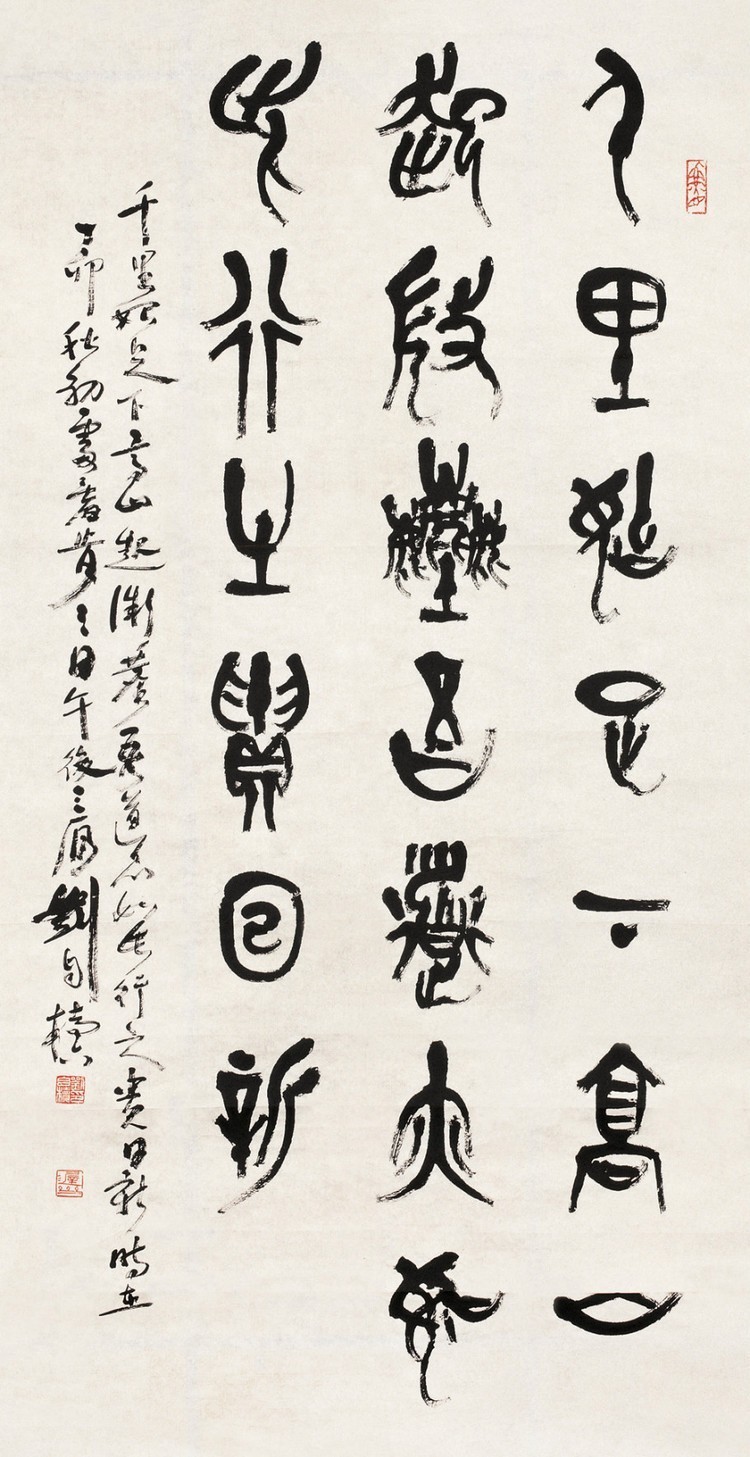 千里始足下高山
起微塵吾道亦如
此行之貴日新
千里始足下高山起微塵吾道亦如此行之貴日新時在
丁卯秋初處暑日午後三原劉自櫝